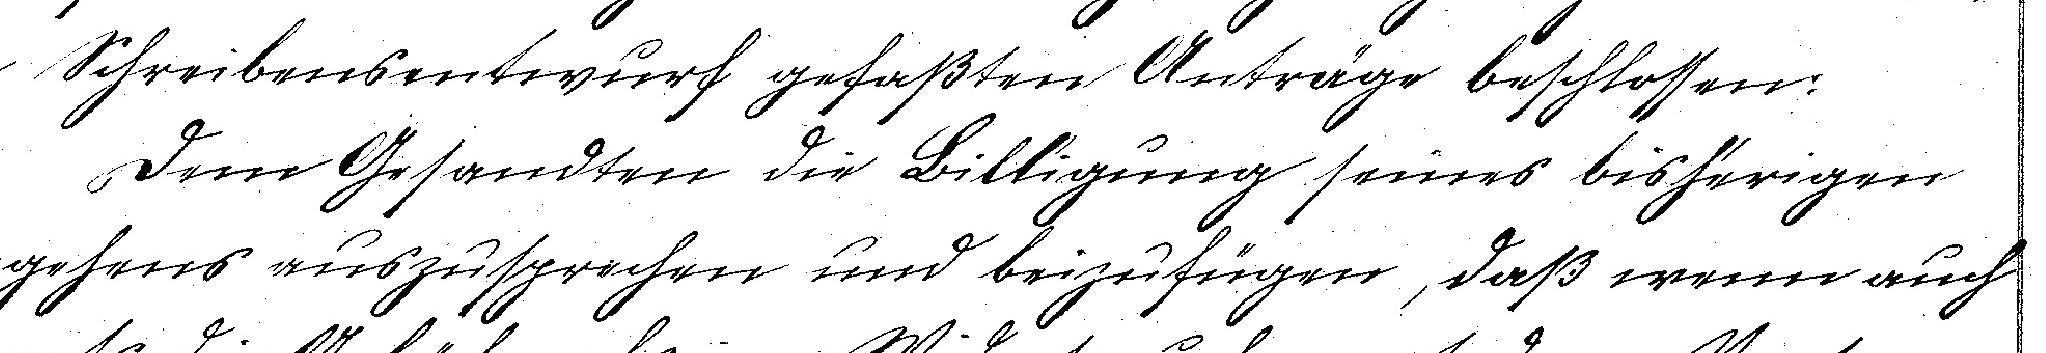 Schreibensentwurf gefaßten Anträge beschlossen:
Dem Gesandten die Billigung seines bisherigen
gehens auszusprechen und beizufügen, daß wenn auch